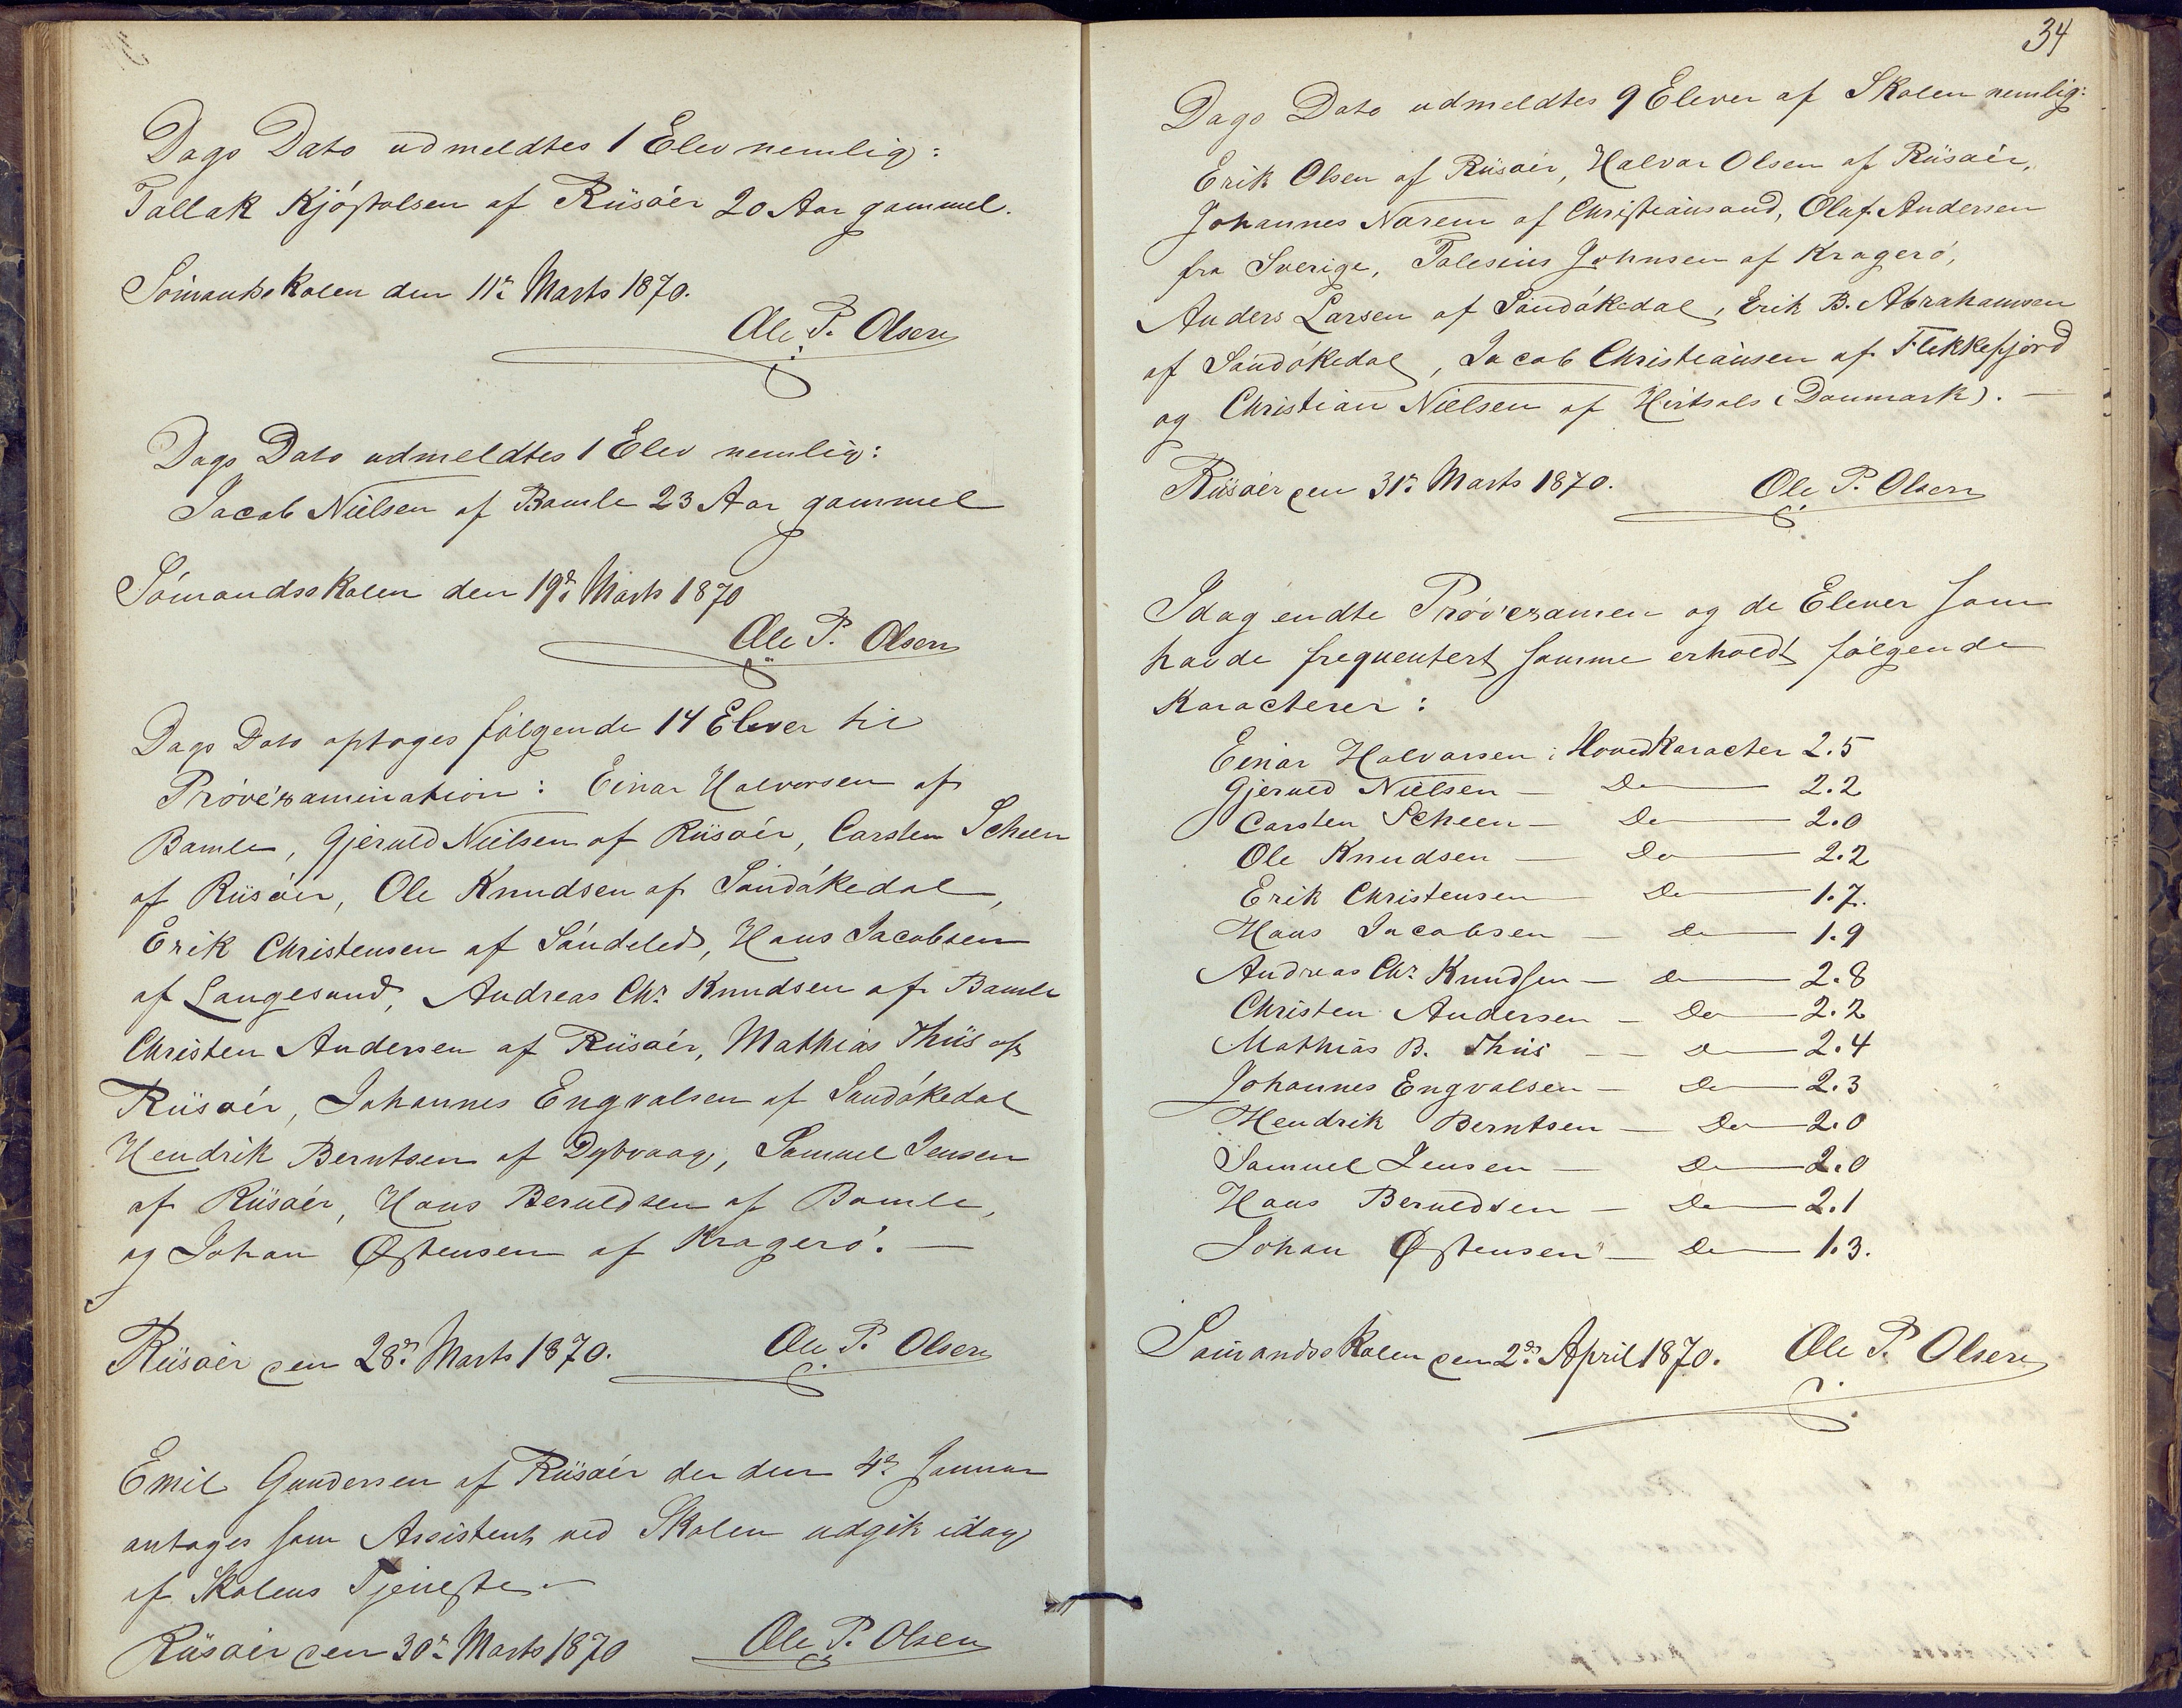 Dags Dato udmeldtes 1 Elev nemlig:
Tallak Kjøstolsen af Riisøer 20 Aar gammel.
Sømandsskolen den 11te Marts 1870.
Ole P. Olsen
Dags Dato udmeldtes 1 Elev nemlig:
Jacob Nielsen af Bamle 23 Aar gammel
Sømandsskolen den 19de Marts 1870
Ole P. Olsen
Dags Dato optoges følgende 14 Elever til
Prøvexamination: Einar Halvorsen af
Bamle, Gjeruld Nielsen af Riisøer, Carsten Scheen
af Riisøer, Ole Knudsen af Sandøkedal,
Erik Christensen af Søndeled, Hans Jacobsen
af Langesund, Andreas Chr. Knudsen af Bamle
Christen Andersen af Riisøer, Mathias Thiis af
Riisøer, Johannes Engvalsen af Sandøkedal
Hendrik Berntsen af Dybvaag, Samuel Jensen
af Riisøer, Hans Beruldsen af Bamle,
og Johan Østensen af Kragerø. —
Riisøer den 28de Marts 1870. Ole P. Olsen
Emil Gundersen af Riisøer der den 4de Januar
antoges som Assistent ved Skolen udgik idag
af Skolens Tjeneste. —
Riisøer den 30te Marts 1870 Ole P. Olsen
34
Dags Dato udmeldtes 9 Elever af Skolen nemlig:
Erik Olsen af Riisøer, Halvor Olsen af Riisøer,
Johannes Narem af Christiansand, Olaf Andersen
fra Sverige, Johnsen af Kragerø,
Anders Larsen af Sandøkedal, Erik B. Abrahamsen
af Sandøkedal, Jacob Christiansen af Flekkefjord
og Christian Nielsen af Hirtsals (Danmark). —
Riisøer den 31te Marts 1870. Ole P. Olsen
Idag endte Prøvexamen og de Elever som
havde frequentert samme erholdt følgende
Karacterer:
Einar Halvorsen: Hovedkaracter 2.5
Gjeruld Nielsen — Do — 2.2
Carsten Scheen — Do — 2.0
Ole Knudsen — Do — 2.2
Erik Christensen — Do — 1.7.
Hans Jacobsen — Do — 1.9
Andreas Chr. Knudsen — Do — 2.8
Christen Andersen — Do — 2.2
Mathias B. Thiis — Do — 2.4
Johannes Engvalsen — Do — 2.3
Hendrik Berntsen — Do — 2.0
Samuel Jensen — Do — 2.0
Hans Beruldsen — Do — 2.1
Johan Østensen — Do — 1.3.
Sømandsskolen den 2den April 1870. Ole P. Olsen